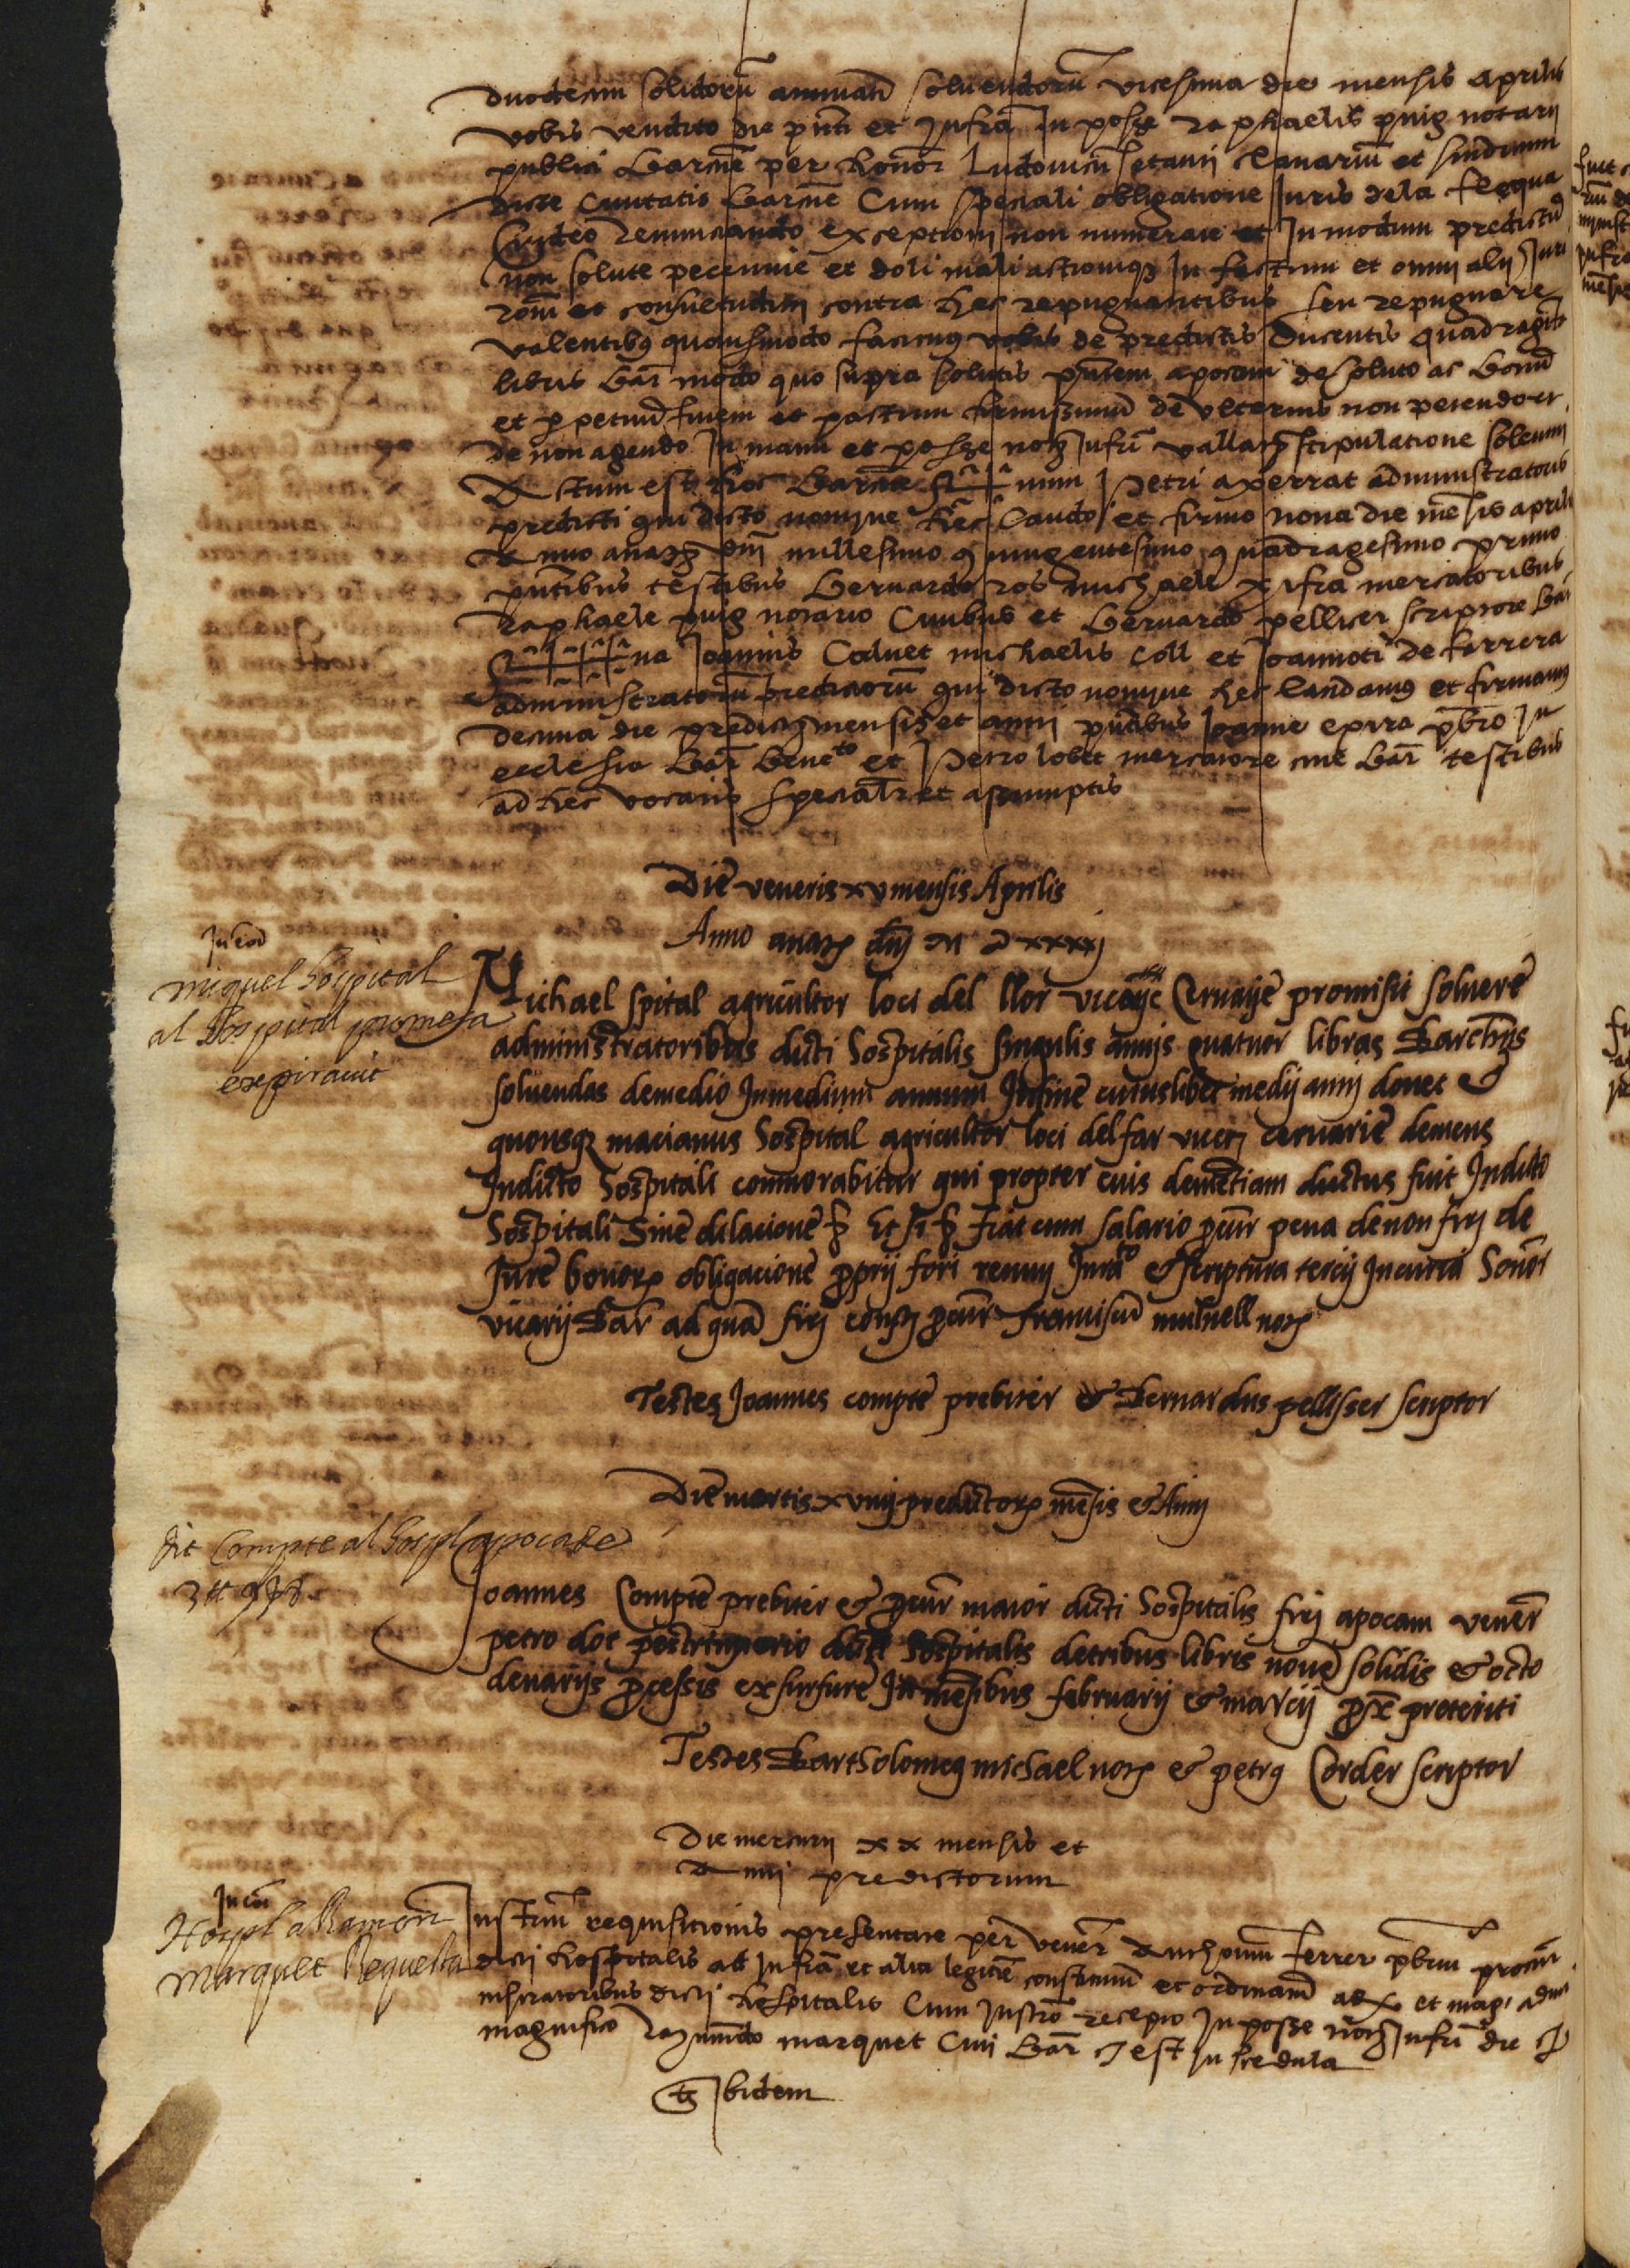 duodecim solidorũ annuatĩ soluendorũ vicesima die mensis aprilis
vobis vendito die pñti et Jnfra In posse raphaelis puig notarij
publici barcñe per honoꝶ ludouicũ setanti clauariũ et sindicum
dicte Ciuitatis barcñe Cum speciali obligatione Juris dela flequa
Et ideo renunciando exceptioni non numerate et In modum predictũ
non solute peccunie et doli mali actioniqȝ In factum et omnj alij Juri
rõni et consuetudinj contra hec repugnantibus seu repugnare
valentibȝ quouismodo facimȝ vobis de predictis ducentis quadragĩta
libris bar̃ modo quo supra solutis pñtem apocam de soluto ac bonũ
et perpetuũ finem et pactum firmissimũ de vlterius non petendo et
de non agendo In manu et posse notȝ Jnfrĩ vallatȝ stipulatione solemnj
Actum est hoc barcñe Sig+num Petri axerrat administratoris
predicti qui dicto nomjne hec laudo et firmo nona die mẽsis aprilis
Anno a natȝ dnj millesimo quingentesimo quadragesimo primo
pñtibus testibus bernardo ros michaele xifra mercatoribus
Raphaele puig notario Ciuibus et bernardo pellicer scriptore bar̃
Sig+++na Joannis Caluet michaelis coll et Joannoti de ferrera
administratorũ predictorũ qui dicto nomjne hec laudamȝ et firmamȝ
decima die predictȝ mensis et anni pñtibus Joanne exirra pbro In
ecclesia bar̃ benefto et Petro lobet mercatore ciue bar̃ testibus
ad hec vocatis specialr̃ et assumptis
Die veneris xv mensis Aprilis
Anno a natȝ dnj M D xxxxj
In cõi
miquel hospital
al hospital promesa
expirauit
Michael spital agricultor loci del llor vicarie Ceruarie promisit soluere
administratoribus dicti hospitalis singulis annis quatuor libras Barchñs
soluendas de medio Jn medium annum Jn fine cuiuslibet medij annj donec &
quousqȝ macianus hospital agricultor loci del far vicȝ ceruarie demens
Jn dicto hospitali conmorabitur qui propter euis demẽtiam ductus fuit Jn dicto
hospitali sine dilacione ȝ Et si ȝ fiat cum salario pcur̃ pena de non firȝ de
Jure bonorȝ obligacione proprij fori renun Jurato & scriptura tercij Jn curia honor̃
vicarij Bar̃ ad quã firȝ constȝ pcur̃ franciscũ mulnell notȝ
Testes Joannes compte prebiter & Bernardus pellisser scriptor
Die martis xviiij predictorȝ mẽsis & Annj
dit Compte al hospl apoca de
3 ₶ 9 s 8
Joannes Compte prebiter & pcur̃ maior dicti hospitalis firȝ apocam vener̃
petro dot pestrinyerio dicti hospitalis de tribus libris noue solidis & octo
denarijs processis ex furfure Jn mẽsibus februarij & marcij prox̃ preteriti
Testes Bartholomeȝ michael notȝ & petrȝ Corder scriptor
Die mercurij xx mensis et
Anni predictorum
In cõi
Hospl a Ramon
Marquet Requesta
Instrum̃ requisitionis presentate per vener̃ Anthoniũ ferrer pbrum procur̃
dicti hospitalis ad Jnfra et alia legitĩe constitutũ et ordinatũ ab et magȝ admi
nistratoribus dicti hospitalis Cum Jnstrõ recepto In posse notȝ Jnfrĩ die
magnifico raymundo marquet Ciui bar̃ Est In scedula
ibidem